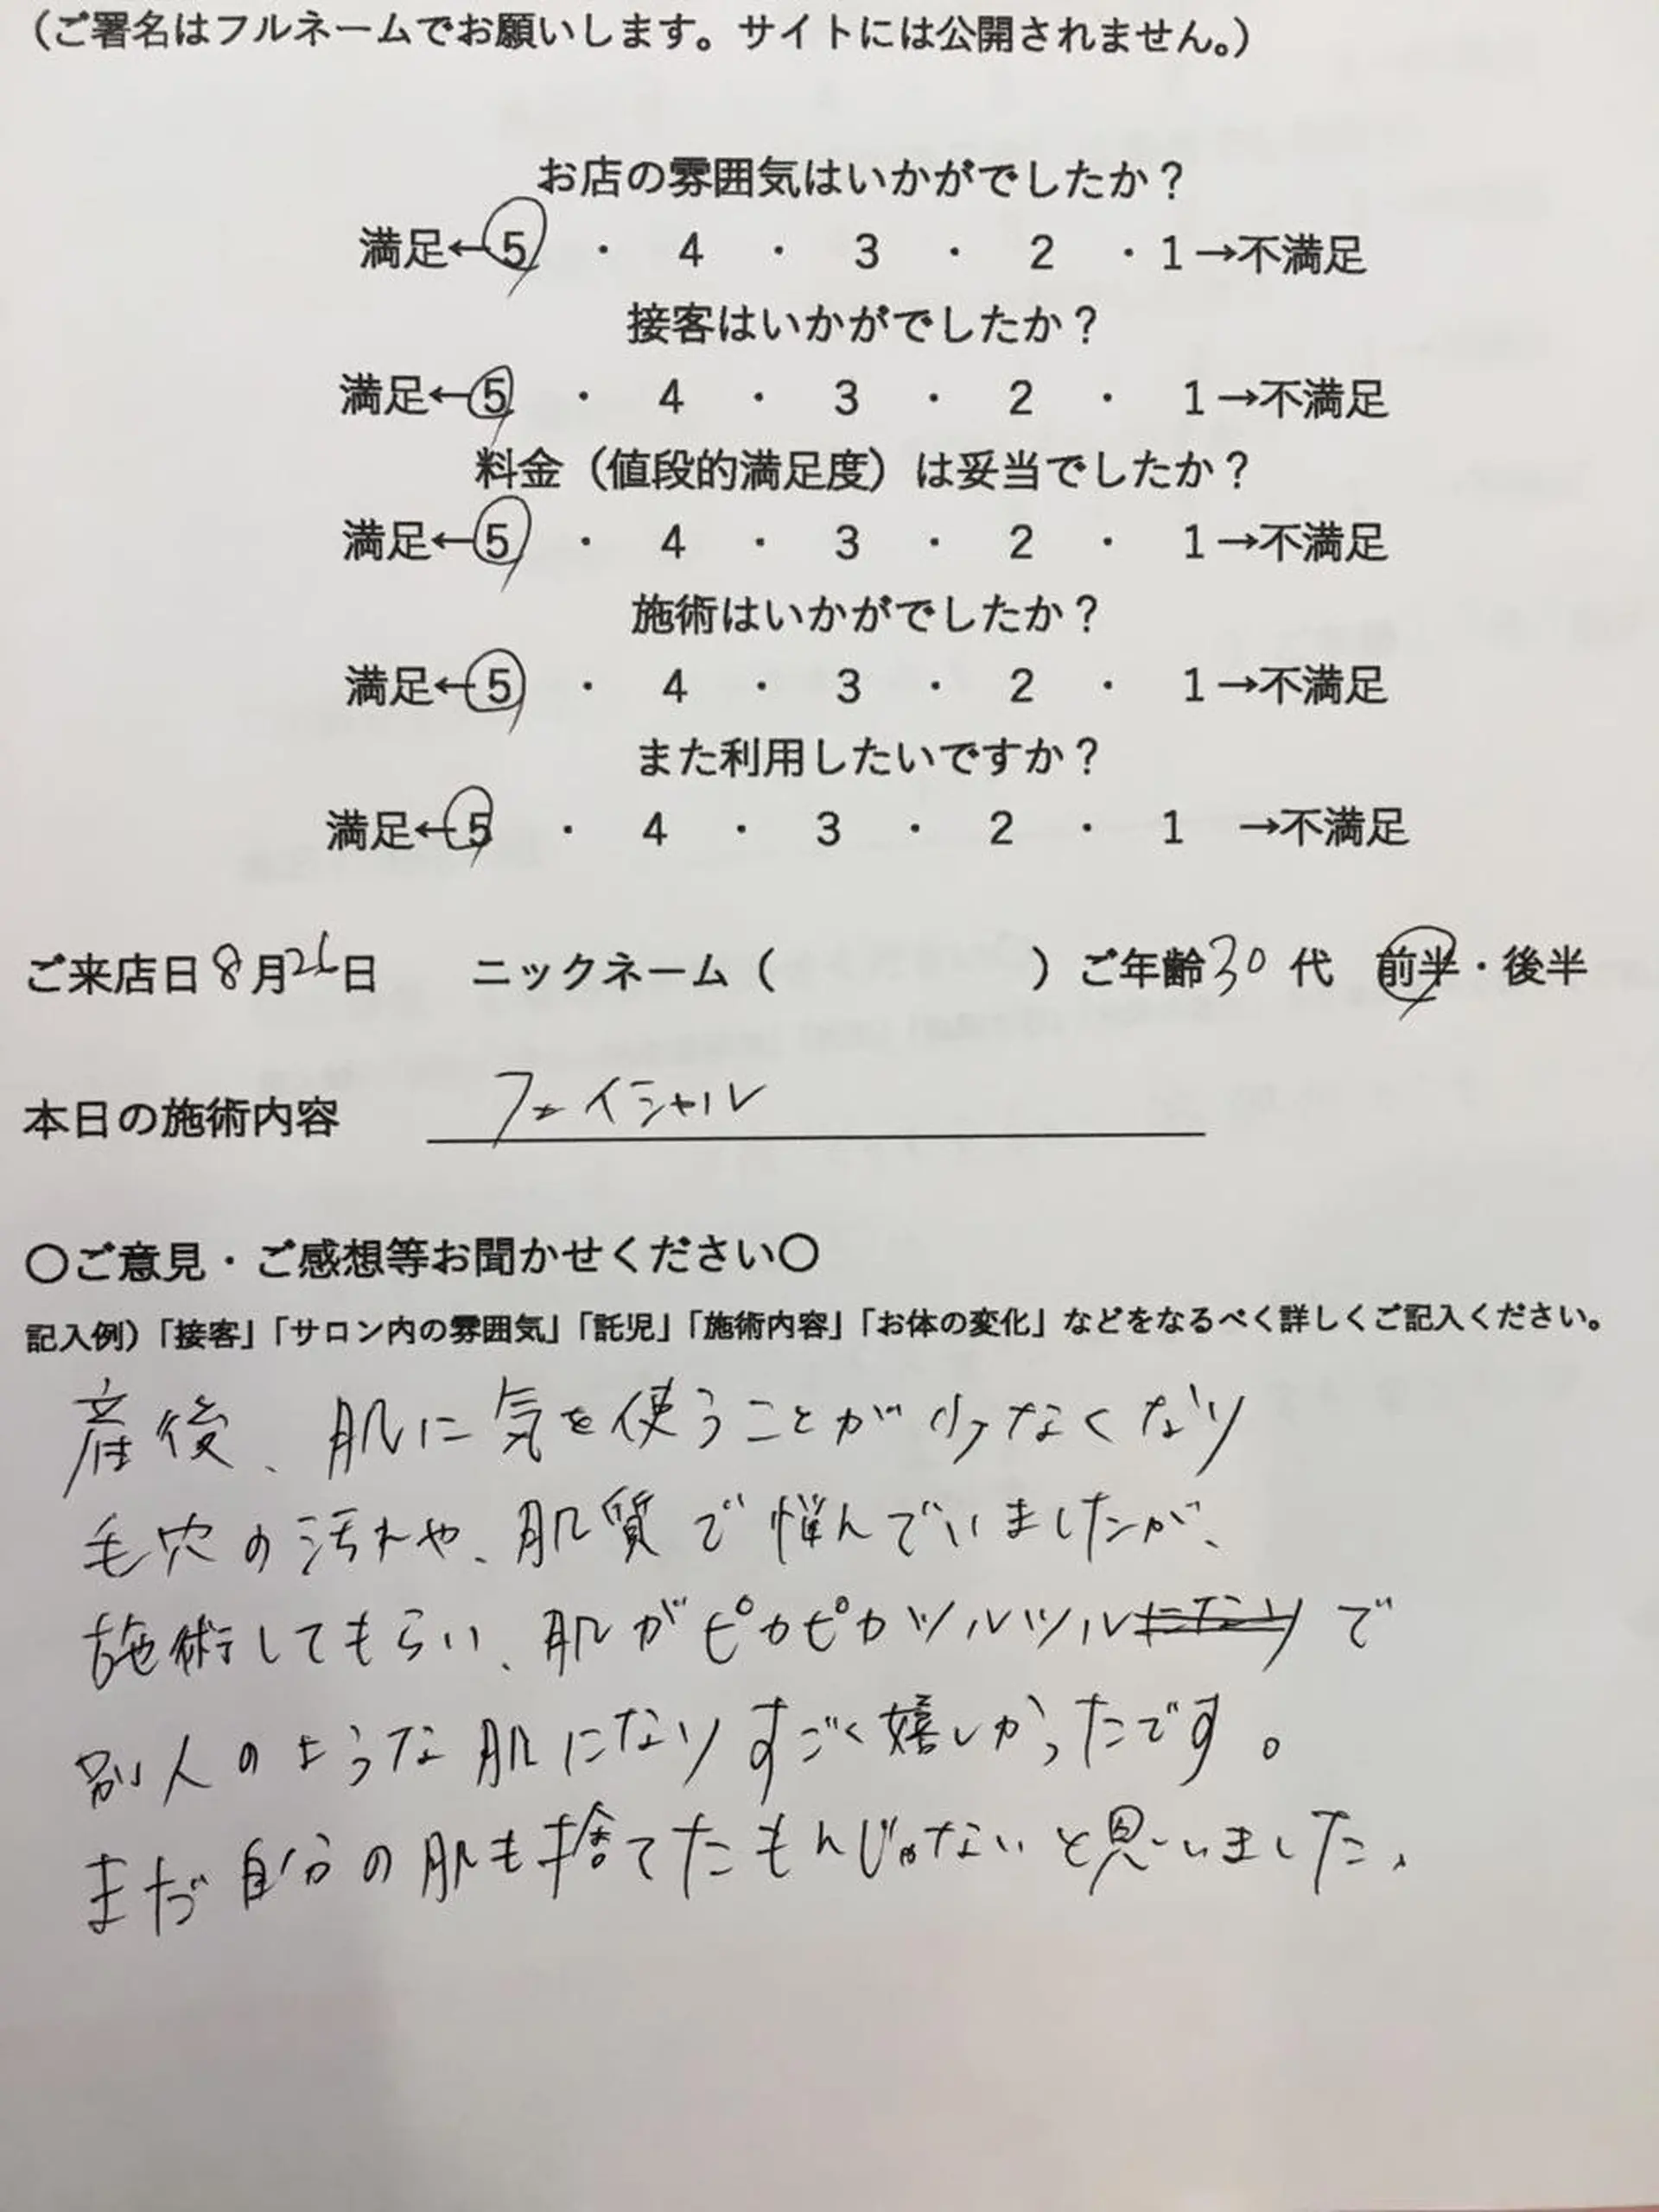 （ご署名はフルネームでお願いします。サイトには公開されません。）
お店の雰囲気はいかがでしたか？
満足←5 ・ 4 ・ 3 ・ 2 ・ 1→不満足
接客はいかがでしたか？
満足←5 ・ 4 ・ 3 ・ 2 ・ 1→不満足
料金（値段的満足度）は妥当でしたか？
満足←5 ・ 4 ・ 3 ・ 2 ・ 1→不満足
施術はいかがでしたか？
満足←5 ・ 4 ・ 3 ・ 2 ・ 1→不満足
また利用したいですか？
満足←5 ・ 4 ・ 3 ・ 2 ・ 1 →不満足
ご来店日8月26日 ニックネーム（ ）ご年齢30代 前半・後半
本日の施術内容 フェイシャル
〇ご意見・ご感想等お聞かせください〇
記入例）「接客」「サロン内の雰囲気」「託児」「施術内容」「お体の変化」などをなるべく詳しくご記入ください。
産後、肌に気を使うことが少なくなり
毛穴の汚れや、肌質で悩んでいましたが、
施術してもらい、肌がピカピカツルツルになりで
別人のような肌になりすごく嬉しかったです。
まだ自分の肌も捨てたもんじゃないと思いました、